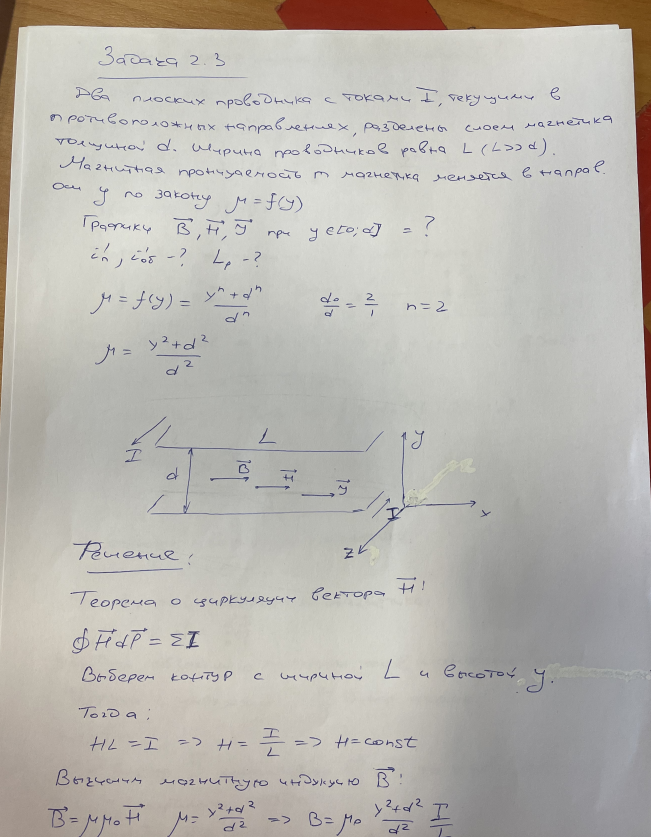 Задача 2.3
Два плоских проводника с токами I, текущими в
противоположных направлениях, разделены слоем магнетика
толщиной d. Ширина проводников равна L (L>>d).
Магнитная проницаемость m магнетика меняется в направ.
оси y по закону μ = f(y)
Графики B⃗, H⃗, J⃗ при y ∈ [0; d] = ?
i'п, i'об - ? Lр - ?
μ = f(y) = (yⁿ + dⁿ)/dⁿ d₀/d = 2/1 n = 2
μ = (y² + d²)/d²
I L y
d B⃗ H⃗ J⃗
I x
z
Решение:
Теорема о циркуляции вектора H⃗!
∮H⃗dl⃗ = ΣI
Выберем контур с шириной L и высотой y.
Тогда:
HL = I => H = I/L => H = const
Вычислим магнитную индукцию B⃗!
B⃗ = μμ₀H⃗ μ = (y² + d²)/d² => B = μ₀ (y² + d²)/d² I/L